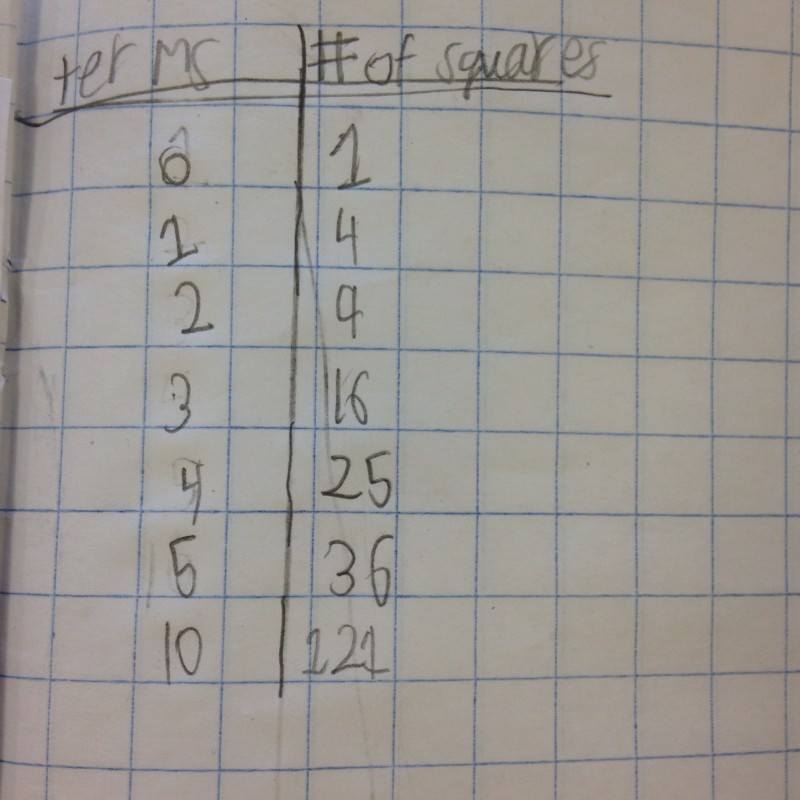 terms # of squares
0 1
1 4
2 9
3 16
4 25
5 36
10 121